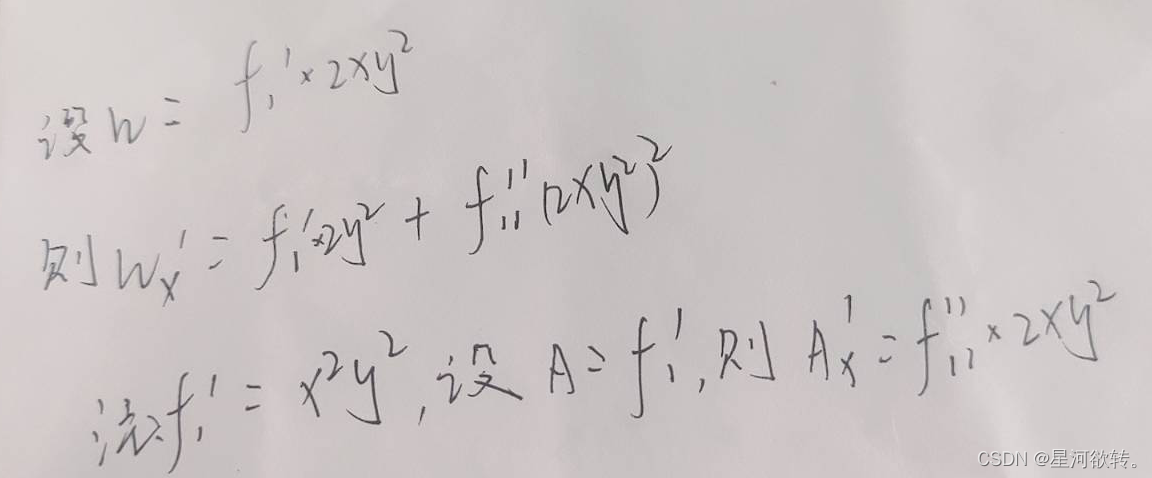 设 w = f₁' × 2xy²
则 wₓ' = f₁'×2y² + f₁₁''(2xy²)²
注:f₁' = x²y², 设 A = f₁', 则 Aₓ' = f₁₁'' × 2xy²
CSDN @星河欲转。